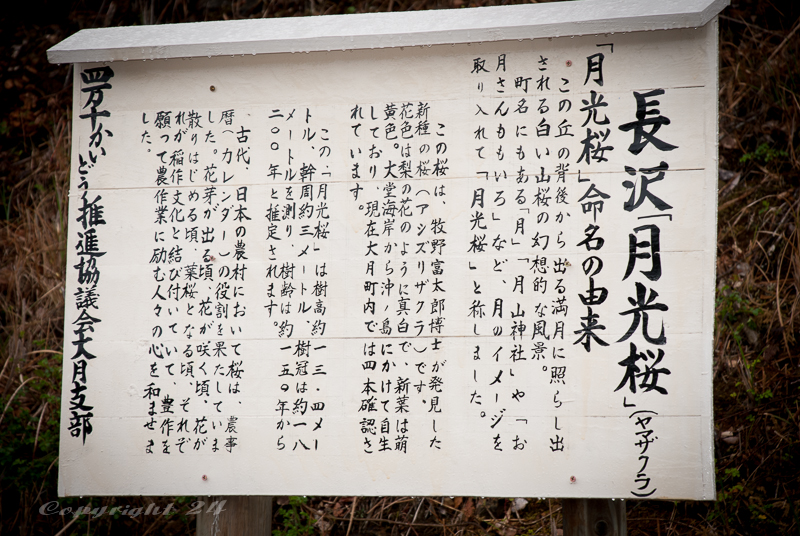 長沢「月光桜」(ヤマザクラ)
「月光桜」命名の由来
この丘の背後から出る満月に照らし出
される白い山桜の幻想的な風景。
町名にもある「月」「月山神社」や「お
月さんももいろ」など、月のイメージを
取り入れて「月光桜」と称しました。
この桜は、牧野富太郎博士が発見した
新種の桜(アシズリザクラ)です。
花色は梨の花のように真白で、新葉は萌
黄色。大堂海岸から沖ノ島にかけて自生
しており、現在大月町内では四本確認さ
れています。
この「月光桜」は樹高約一三・四メー
トル、幹周約三メートル、樹冠は約一八
メートルを測り、樹齢は約一五〇年から
二〇〇年と推定されます。
古代、日本の農村において桜は、農事
暦(カレンダー)の役割を果たしていま
した。花芽が出る頃、花が咲く頃、花が
散りはじめる頃、葉桜となる頃、それぞ
れが稲作文化と結び付いていて、豊作を
願って農作業に励む人々の心を和ませま
した。
四万十かいどう推進協議会大月支部
Copyright 24